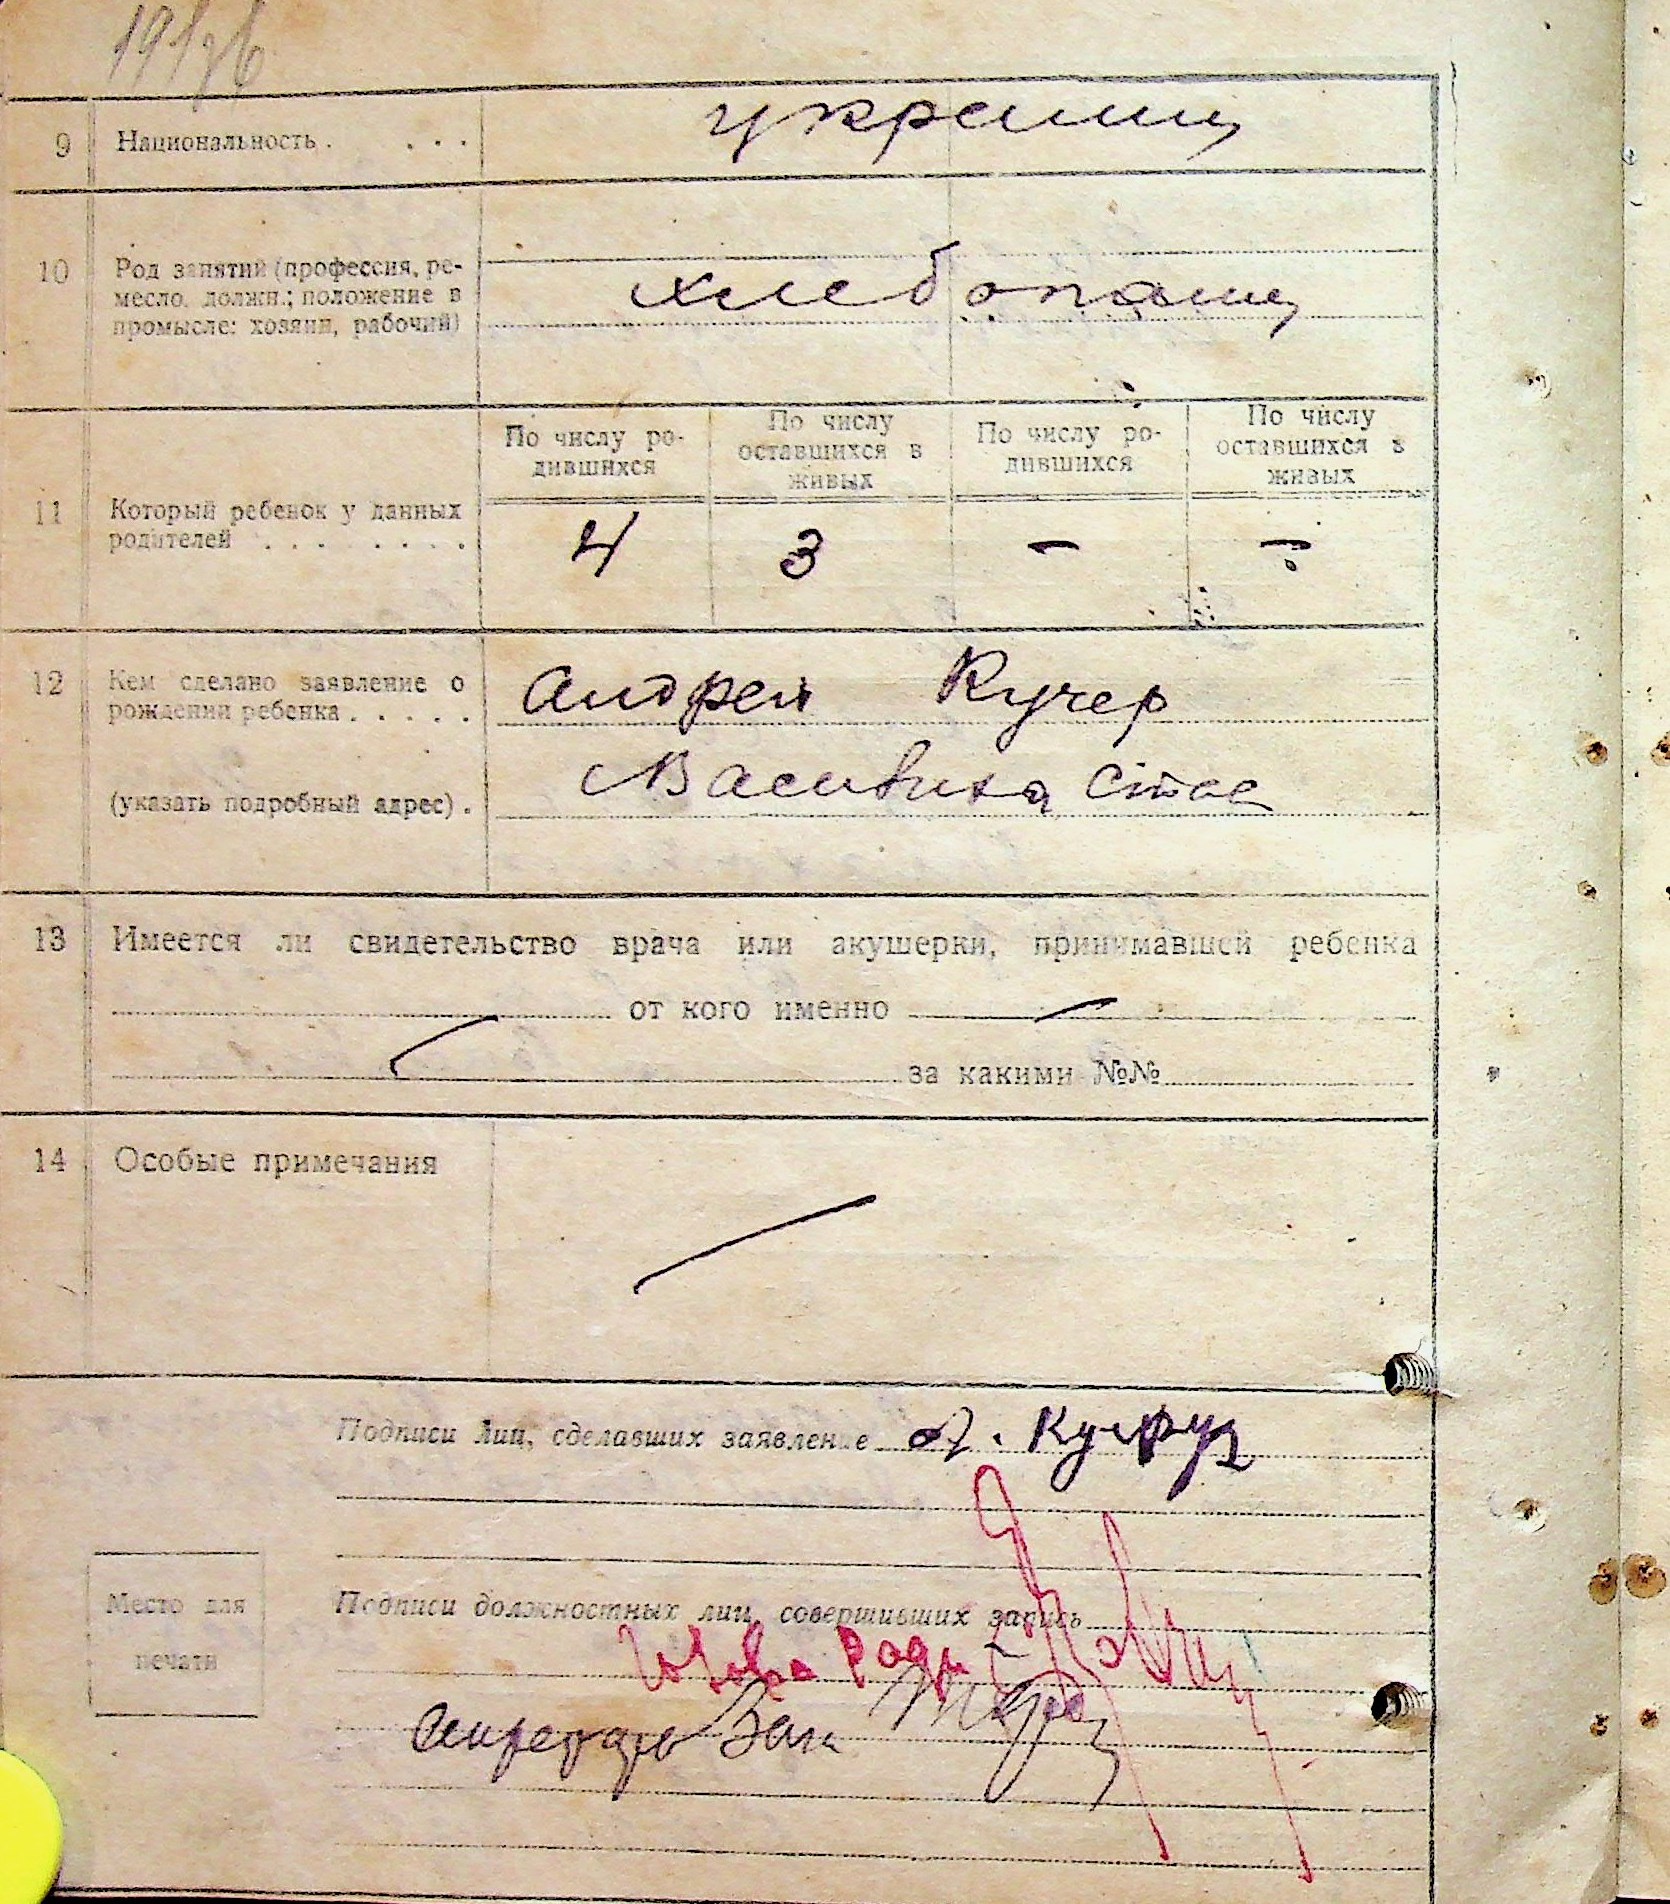 9 Национальность . . . . украинц
10 Род занятий (профессия, ре-
месло, должн.; положение в
промысле: хозяин, рабочий)
хлебопашец
По числу ро-
дившихся
По числу
оставшихся в
живых
По числу ро-
дившихся
По числу
оставшихся в
живых
11 Который ребенок у данных
родителей . . . . . . . 4 3 - -
12 Кем сделано заявление о
рождении ребенка . . . . .
Андрей Кучер
(указать подробный адрес) .
13 Имеется ли свидетельство врача или акушерки, принимавшей ребенка
от кого именно
за какими №№
14 Особые примечания
Подписи лиц, сделавших заявление А. Кучер
Место для
печати
Подписи должностных лиц, совершивших запись
Голова Ради
Секретарь